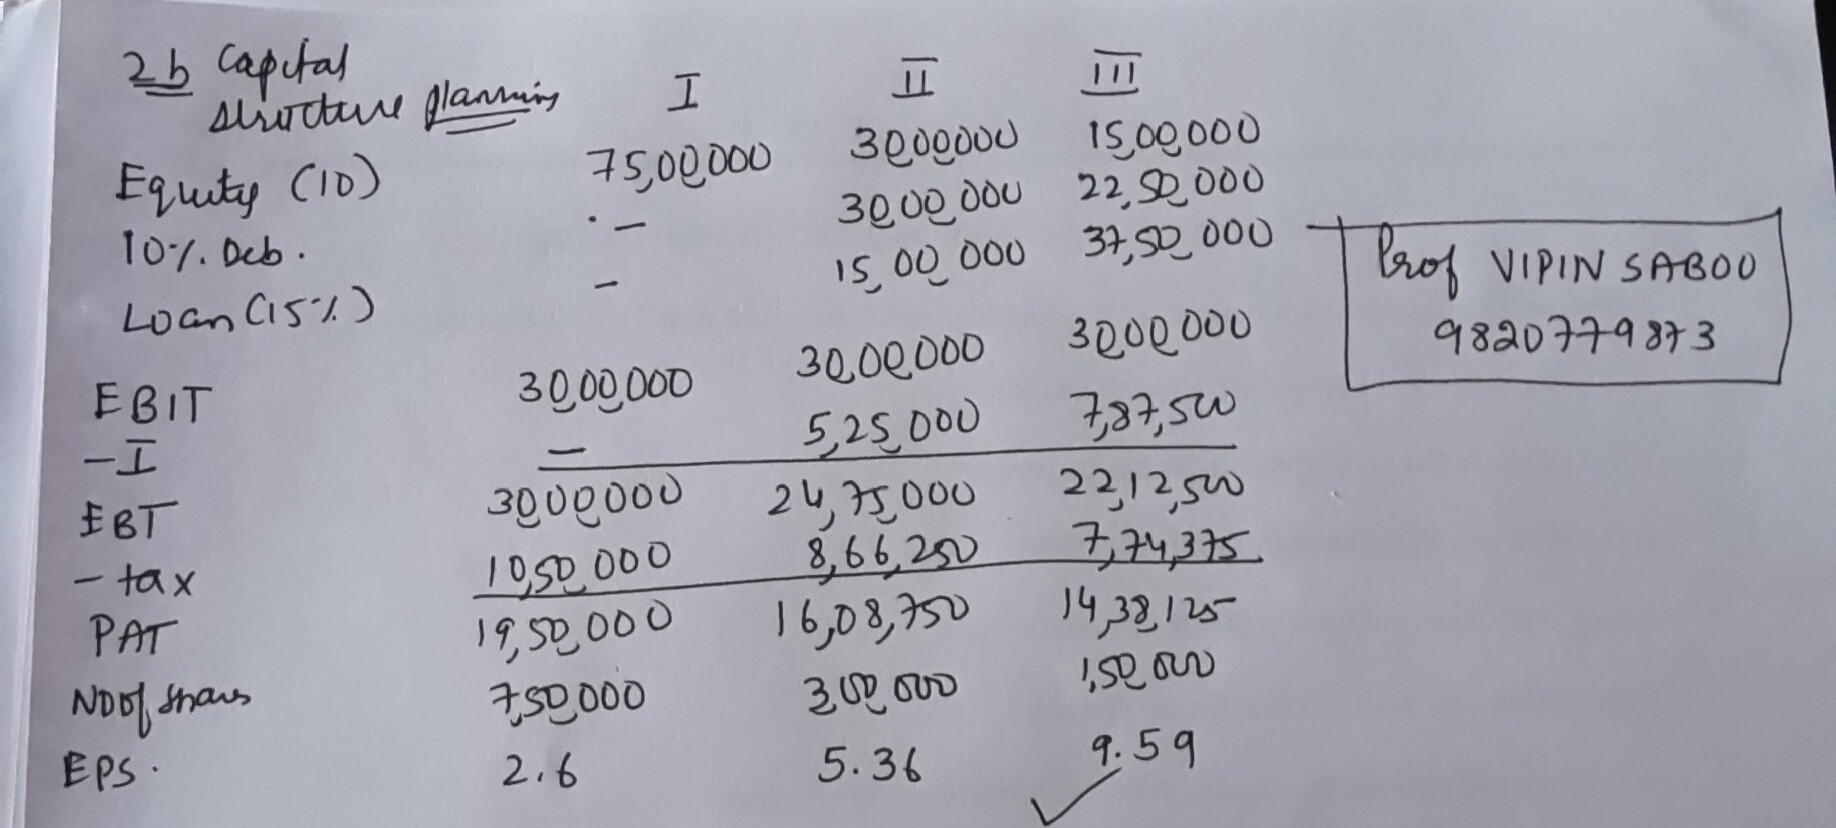 2b Capital
structure planning I II III
Equity (10) 75,00,000 3000000 15,00,000
10%. Deb. - 30,00,000 22,50,000
Loan (15%) - 15,00,000 37,50,000
EBIT 30,00,000 30,00,000 3000,000
- I - 5,25,000 7,87,500
EBT 3000000 24,75,000 22,12,500
- tax 10,50,000 8,66,250 7,74,375
PAT 19,50,000 16,08,750 14,38,125
No of shares 7,50,000 300,000 1,50,000
EPS. 2.6 5.36 9.59
Prof VIPIN SABOO
9820779873